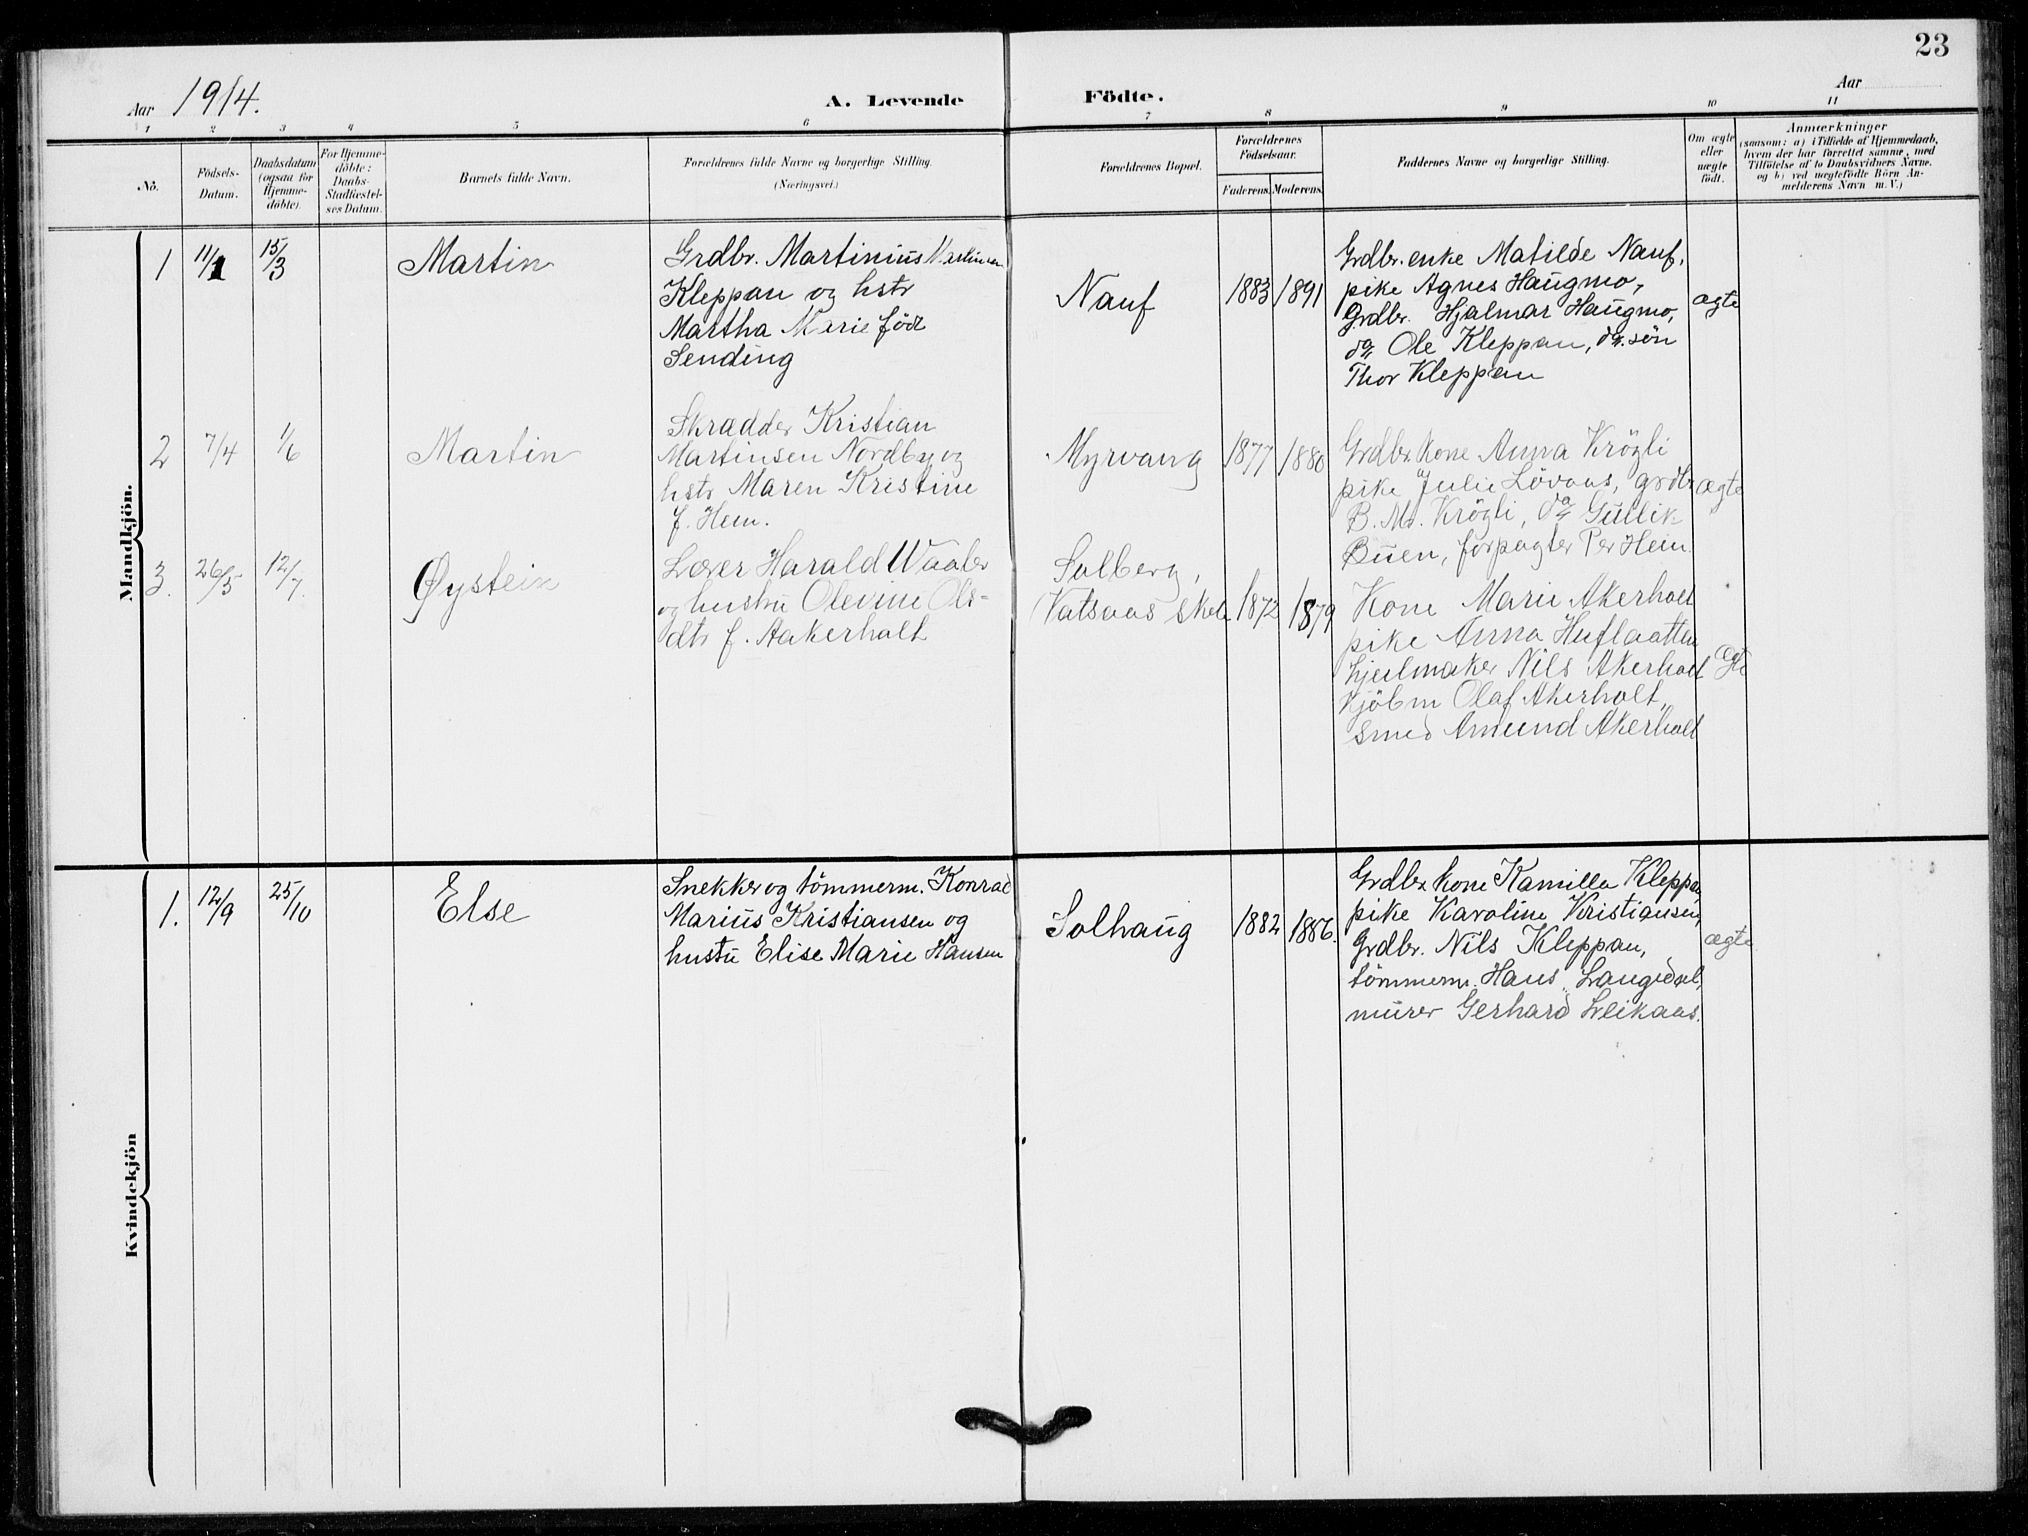 23
Aar 1914.
A. Levende Födte.
Aar
1 2 3 4 5 6 7 8 9 10 11
No.
Födsels-
Datum.
Daabsdatum
(ogsaa for
Hjemme-
döbte).
For Hjemme-
döbte:
Daabs-
Stadfæstel-
ses Datum.
Barnets fulde Navn.
Forældrenes fulde Navne og borgerlige Stilling.
(Næringsvei.)
Forældrenes Bopæl.
Forældrenes
Födselsaar.
Faderens. Moderens.
Faddernes Navne og borgerlige Stilling.
Om ægte
eller
uægte
födt.
Anmærkninger
(saasom: a) i Tilfælde af Hjemmedaab,
hvem der har forrettet samme, med
Tilföielse af to Daabsvidners Navne.
og b) ved uægtefödte Börn An-
melderens Navn m. V.)
Mandkjön.
1 11/1 15/3 Martin
Grdbr. Martinius Martinsen
Kleppan og hstr
Martha Marie föd
Sending
Nauf 1883 1891
Grdbr. enke Matilde Nauf,
pike Agnes Haugmo,
Grdbr. Hjalmar Haugmo,
do Ole Kleppan, do. sön
Thor Kleppan
ægte
2 7/4 1/6 Martin
Skrædder Kristian
Martinsen Nordby og
hstr Maren Kristine
f. Hem.
Myrvang 1877 1880
Grdbr. kone Anna Krögli
pike Julie Lövaas, grdbr
B. M. Krögli, do Gullik
Buen, forpagter Per Hem.
ægte
3. 26/5 12/7. Øystein
Lærer Harald Waaler
og hustru Olevine Ols-
dtr f. Aakerholt
Solberg,
(Vatsaas skole 1872 1879
Kone Marie Akerholt
pike Anna Huflaatten
hjulmaker Nils Akerholt
Kjöbm Olaf Akerholt,
smed Amund Akerholt
ægte
Kvindekjön
1. 12/9 25/10 Else
Snekker og tömmerm. Konrad
Marius Kristiansen og
hustu Elise Marie Hansen
Solhaug 1882 1886.
Grdbr. kone Kamilla Kleppan
pike Karoline Kristiansen,
Grdbr. Nils Kleppan,
tömmerm. Hans Langedal,
murer Gerhard Leikaas.
ægte